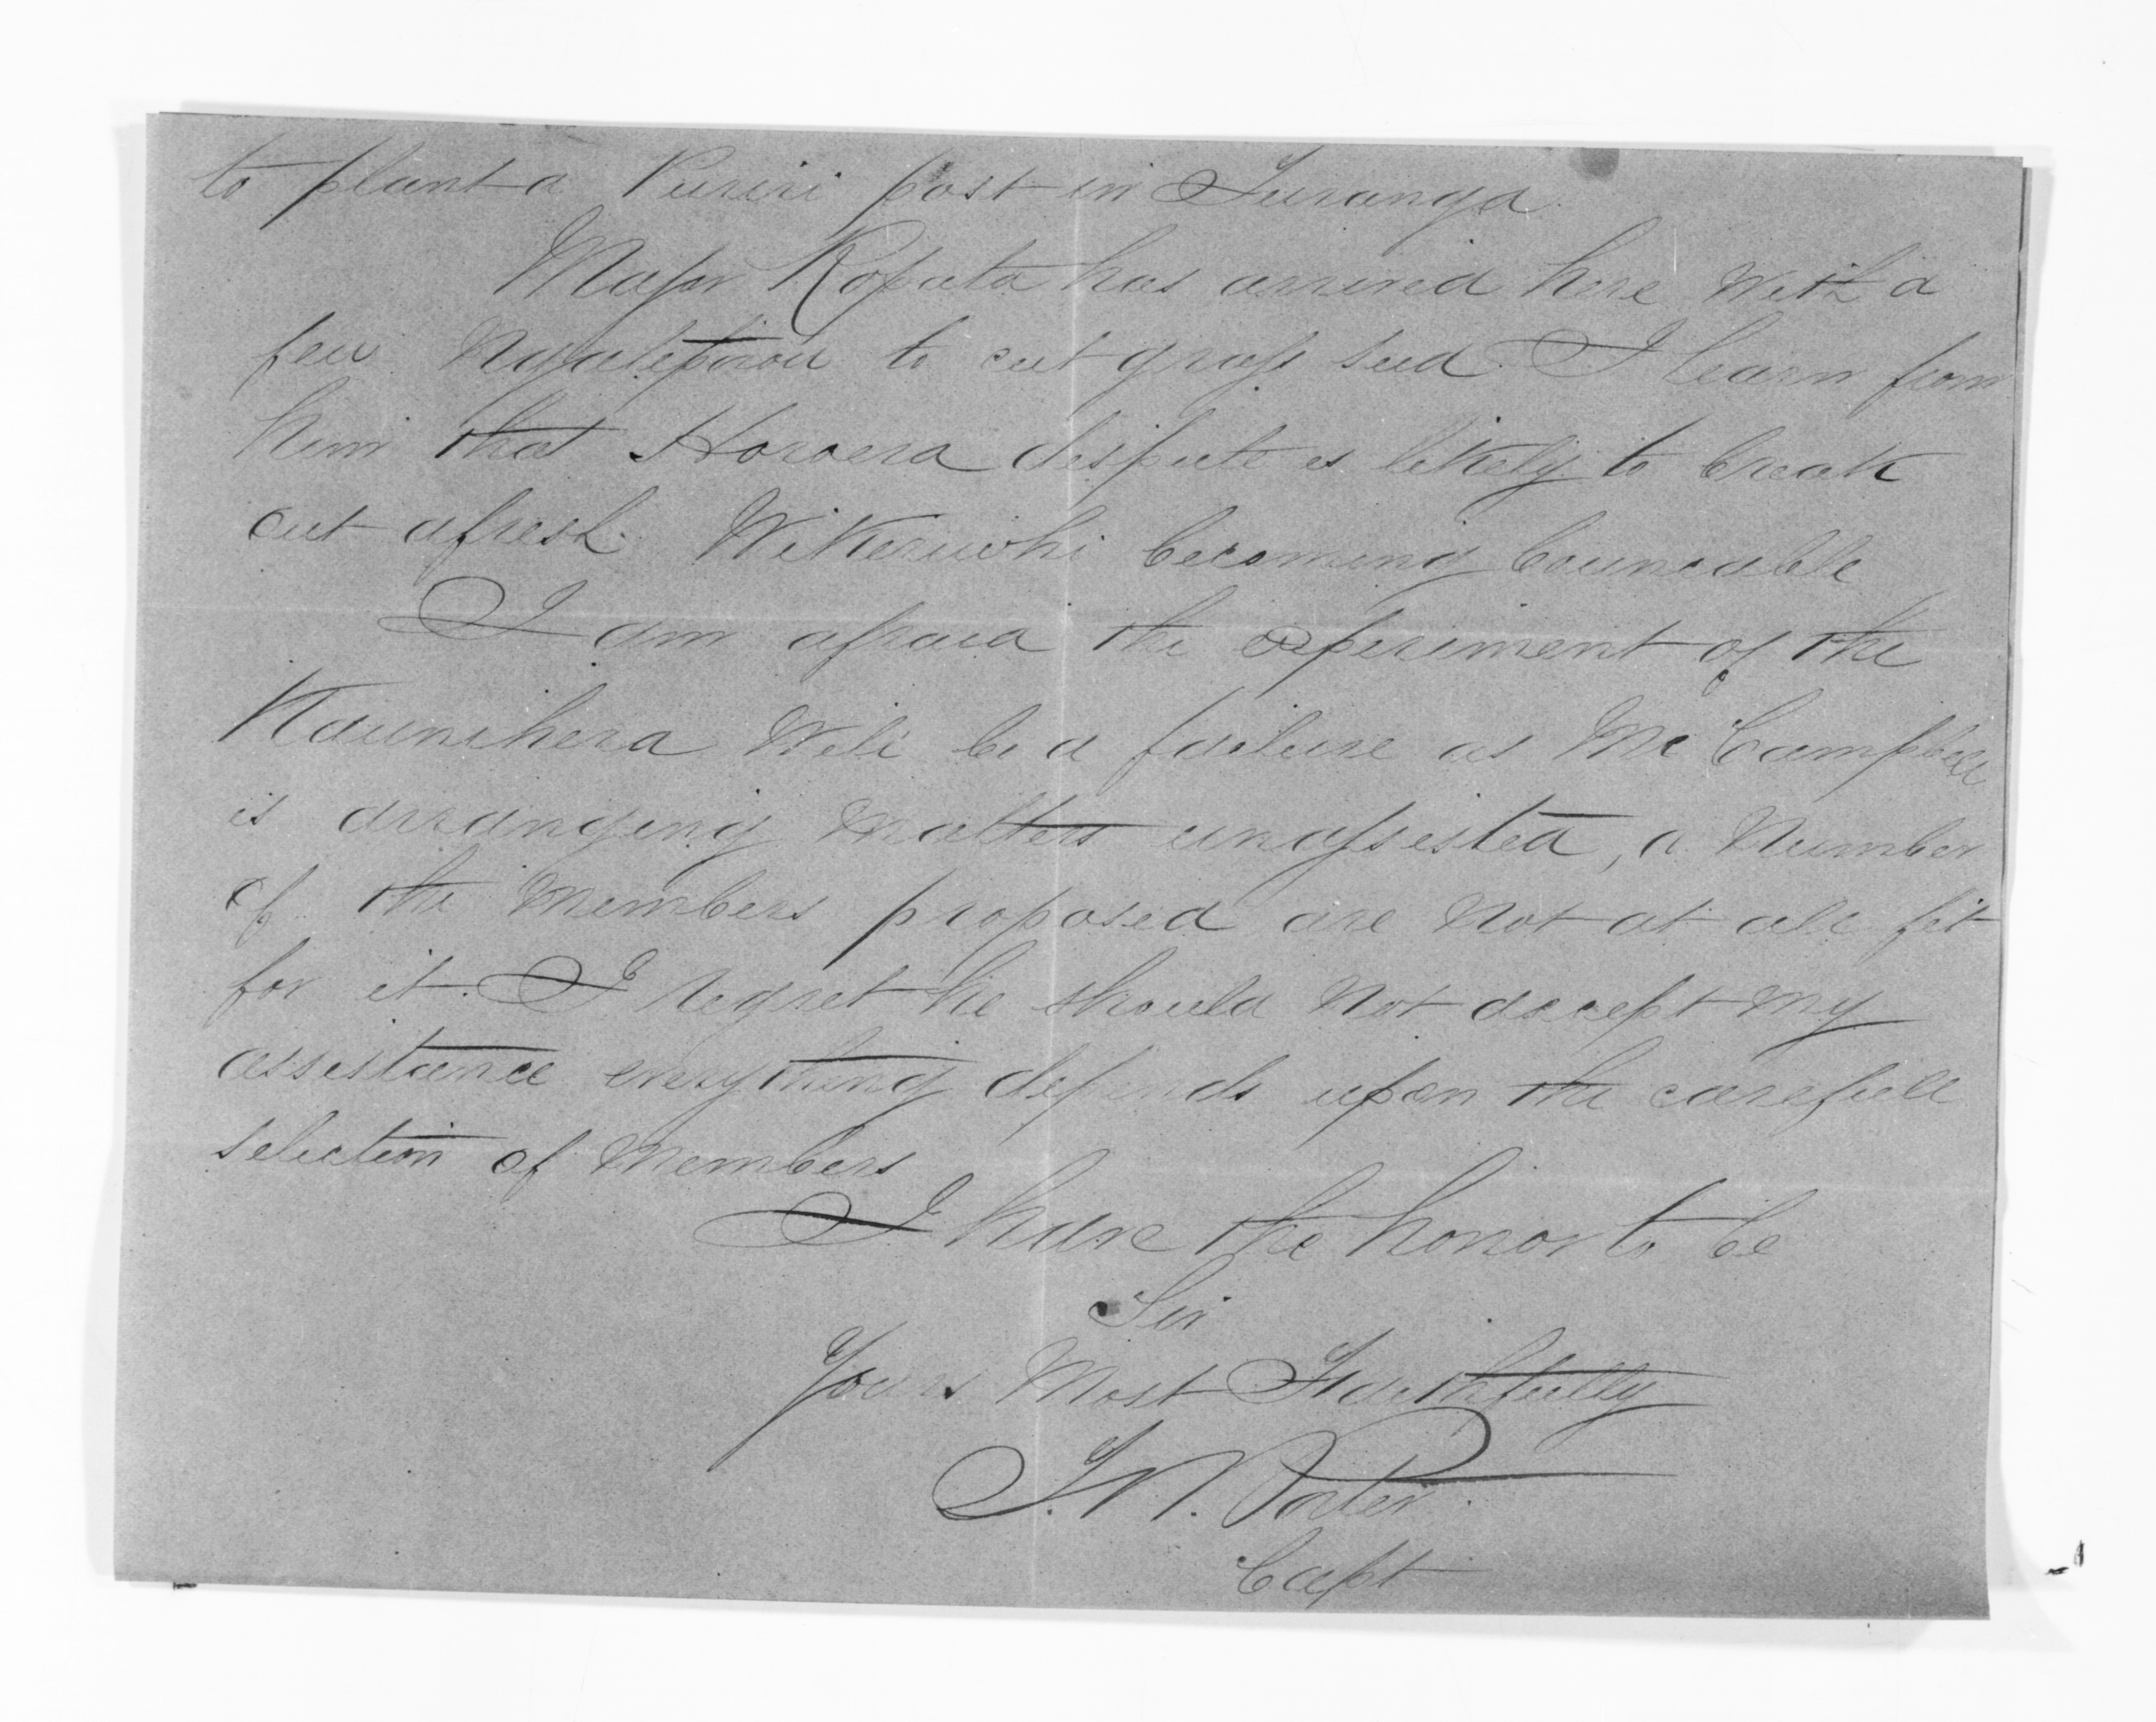 to plant a Puriri post in Turanga
Major Ropata has arrived here with a
few Ngatiporou to cut grass seed. I learn from
him that Horoera dispute is likely to break
out afresh. WiKeriwhi becoming
I am afraid the experiment of the
Kaunihera will be a failure as Mr Campbell
is arranging matters unassisted, a number
of the members proposed are not at all fit
for it. I regret he should not accept my
assistance everything depends upon the carefull
selection of members
I have the honor to be
Sir
Yours Most Faithfully
T.W. Porter.
Capt